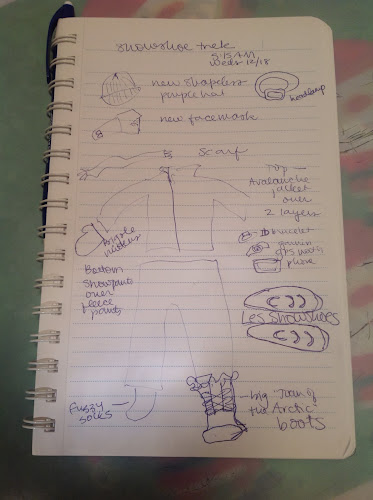 Snowshoe trek
5:15 AM
Weds 12/18
new shapeless
purple hat
headlamp
new facemask
Scarf
TOP —
Avalanche
jacket
over
2 layers
ID bracelet
garmin
GPS watch
phone
bicycle
mittens
Bottom
Snowpants
over
fleece
pants
Les Snowshoes
Fuzzy
socks
big "Joan of
the Arctic"
boots